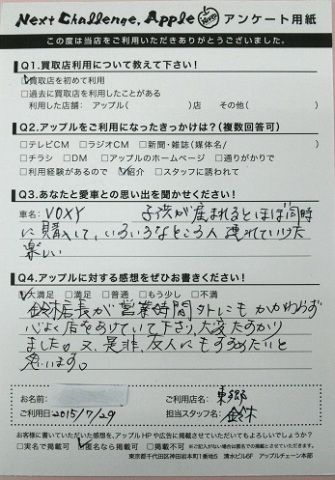 Next Challenge, Apple アンケート用紙
この度は当店をご利用いただきありがとうございました。
Q1.買取店利用について教えて下さい!
☑買取店を初めて利用
□過去に買取店を利用したことがある
利用した店舗: アップル( )店 その他( )
Q2.アップルをご利用になったきっかけは?(複数回答可)
□テレビCM □ラジオCM □新聞・雑誌(媒体名/ )
□チラシ □DM □アップルのホームページ □通りがかりで
□利用経験があるので ☑紹介 □スタッフに誘われて
Q3.あなたと愛車との思い出を聞かせください!
車名: VOXY 子供が産まれるとほぼ同時
に購入して、いろいろなところへ連れていけた
楽しい
Q4.アップルに対する感想をぜひお書きください!
☑大満足 □満足 □普通 □もう少し □不満
鈴木店長が営業時間外にもかかわらず
心よく店をあけていて下さり、大変たすかり
ました。又、是非、友人にもすすめたいと
思います。
お名前:
ご利用店名: 東郷
ご利用日 2015/7/29
担当スタッフ名: 鈴木
お客様に書いていただいた感想を、アップルHPや広告に掲載させていただいてもよろしいでしょうか?
□実名で掲載可 ☑匿名なら掲載可 □掲載不可
東京都千代田区神田岩本町1番地5 清水ビル6F アップルチェーン本部